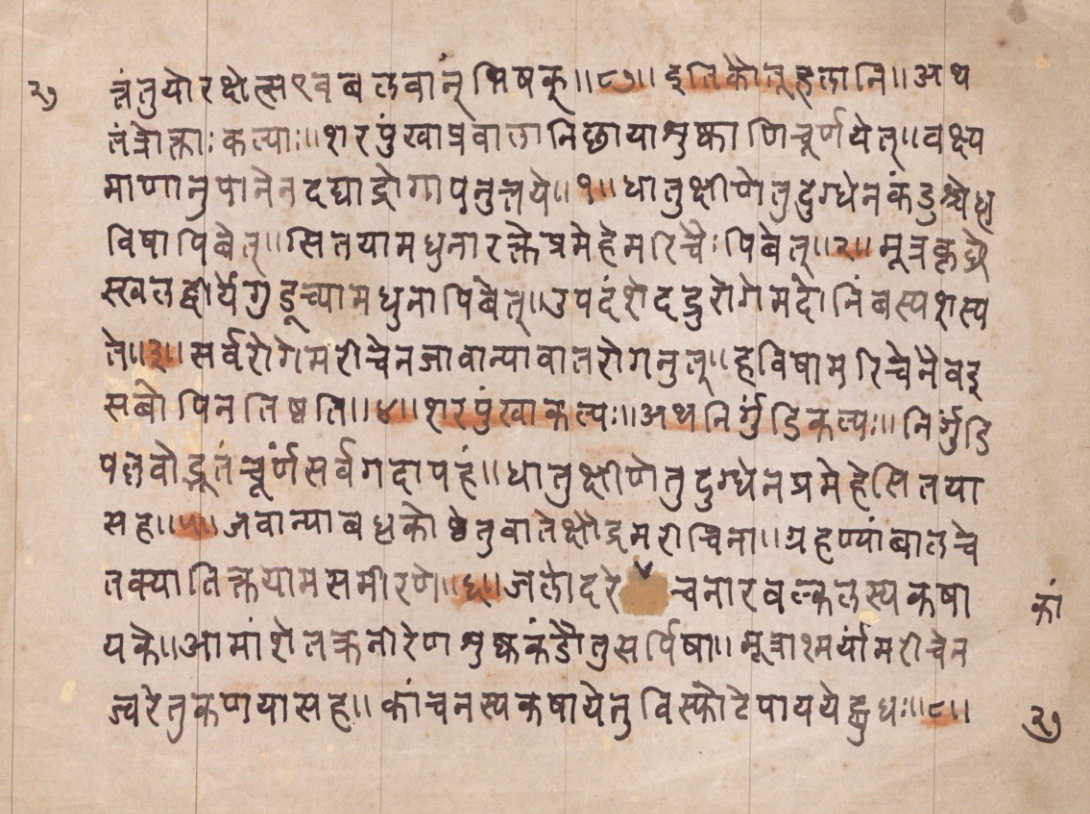 २७
त्नंतुयोरक्षेत्सएवबलवान् भिषक्॥८७॥ इतिकौतूहलानि॥अथ
तंत्रोक्ताःकल्पाः॥शरपुंखाप्रवालानिछायाशुष्काणिचूर्णयेत्॥वक्ष्य
माणानुपानेनदद्याद्रोगापनुत्तये॥१॥धातुक्षीणेतुदुग्धेनकंडुश्चेद्ध
विषापिबेत्॥सितयामधुनारक्तेप्रमेहेमरिचैःपिबेत्॥२॥मूत्रकृछ्रे
स्खलद्वीर्येगुडूच्यामधुनापिबेत्॥उपदंशेदद्रुरोगेमदोनिंबस्यशस्य
ते॥३॥सर्वरोगेमरीचेनजावान्यावातरोगनुत्॥हविषामरिचेनैवदृ
सबोपिनतिष्ठति॥४॥शरपुंखाकल्पः॥अथनिर्गुंडिकल्पः॥निर्गुंडि
पलवोद्भूतंचूर्णंसर्वगदापहं॥धातुक्षीणेतुदुग्धेनप्रमेहेसितया
सह॥५॥जवान्याबधकोष्ठेतुवातेक्षौद्रमरीचिना॥ग्रहण्यांबालचे
तक्यातिक्तयामसमीरणे॥६॥जलोदरे चनारवल्कलस्यकषा
कां
यके॥आमांशेतक्रनीरेणशुष्ककंडौतुसर्पिषा॥मूत्राश्मर्यांमरीचेन
ज्वरेतुकणयासह॥कांचनस्यकषायेतुविस्फोटेपाययेद्बुधः॥८॥
२७